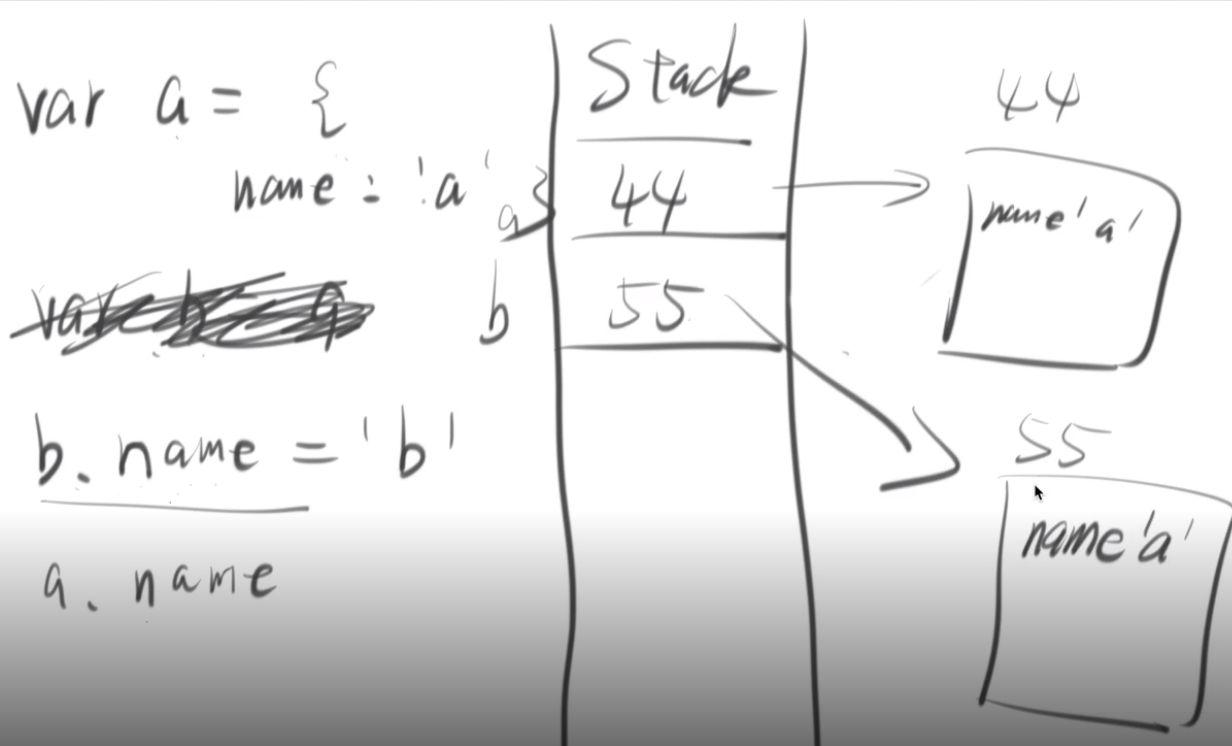 var a = {
name : 'a' }
var b = a
b. name = 'b'
a. name
Stack
a 44
b 55
44
name 'a'
55
name 'a'